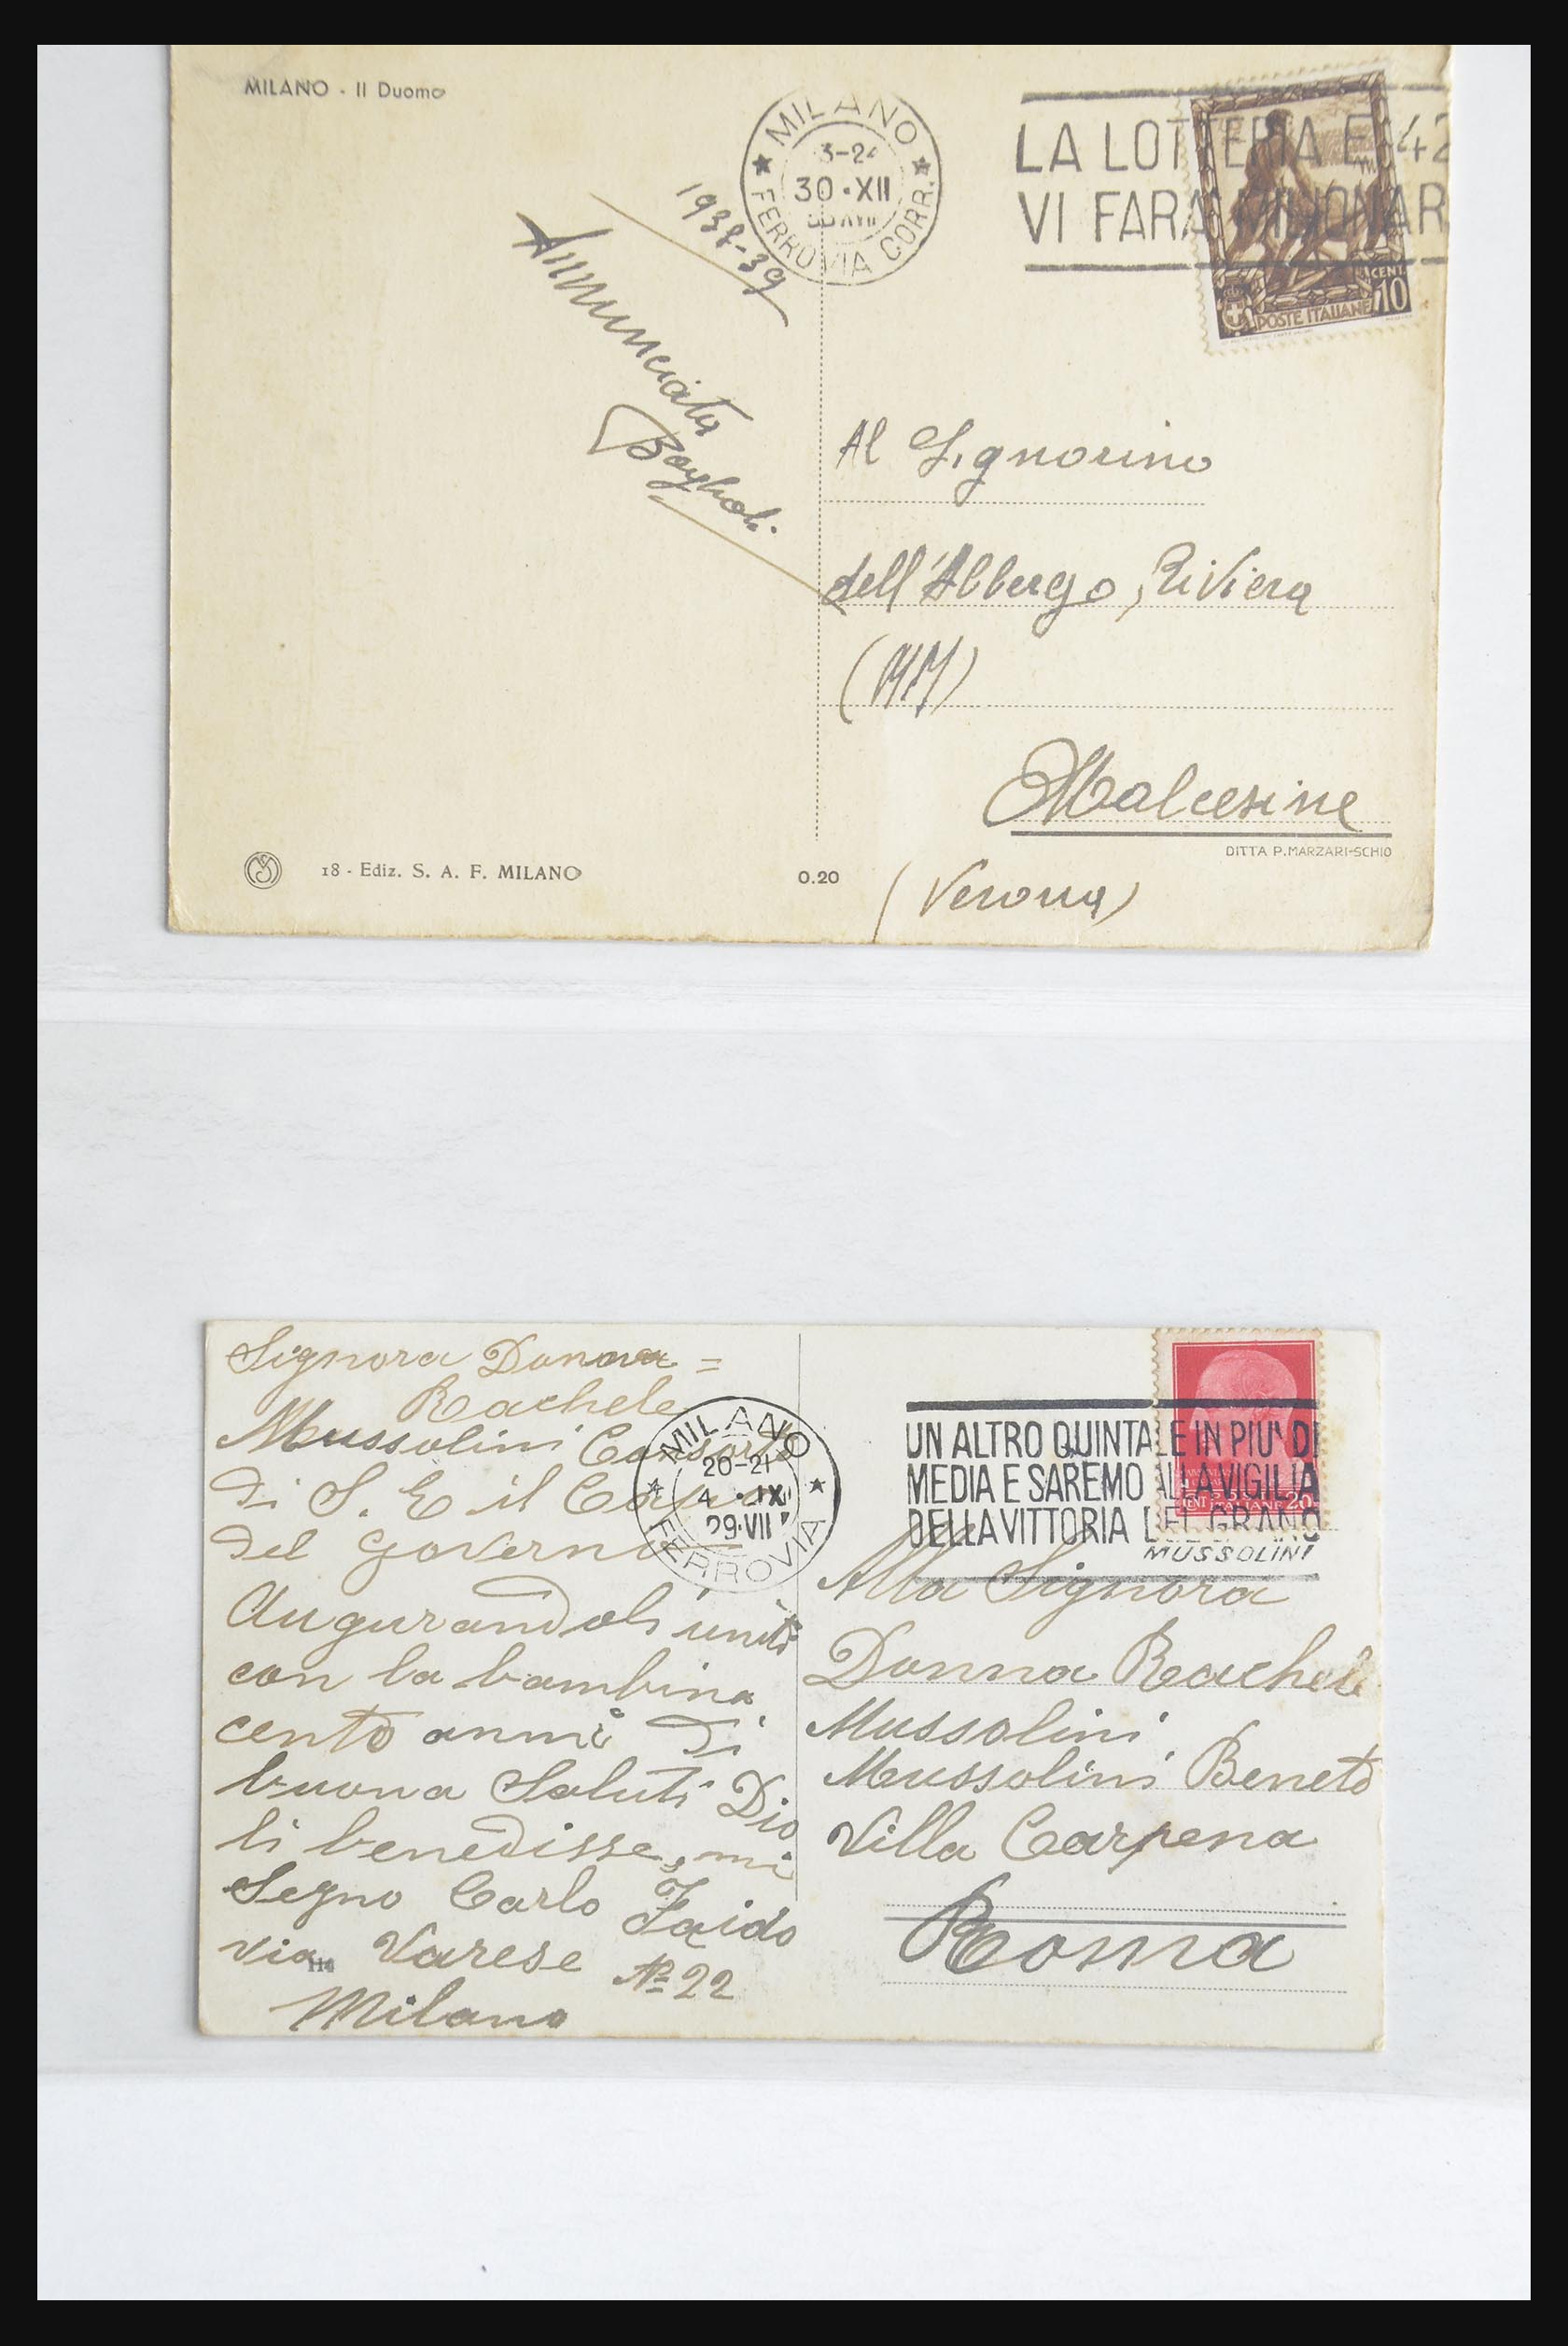 MILANO - Il Duomo
MILANO
3-24
30·XII
FERROVIA CORR.
LA LOTTERIA E 42
VI FARA MILIONAR
CENT.
10
POSTE ITALIANE
1938-39
Annunciata
Al Signorino
dell'Albergo, Riviera
(MM)
Malcesine
DITTA P. MARZARI-SCHIO
(Verona)
18 - Ediz. S. A. F. MILANO
0.20
Signora Donna =
Rachele
Mussolini Consorte
di S. E il Capo
del Governo
Augurandoli uniti
con la bambina
cento anni di
buona Saluti Dio
li benedisse, mi
Segno Carlo Zaido
via Varese No 22
Milano
MILANO
20-21
4 · IX
29·VII
FERROVIA
UN ALTRO QUINTALE IN PIU' DI
MEDIA E SAREMO ALLA VIGILIA
DELLA VITTORIA DEL GRANO
MUSSOLINI
Alla Signora
Donna Rachele
Mussolini
Mussolini Beneto
Villa Carpena
Roma